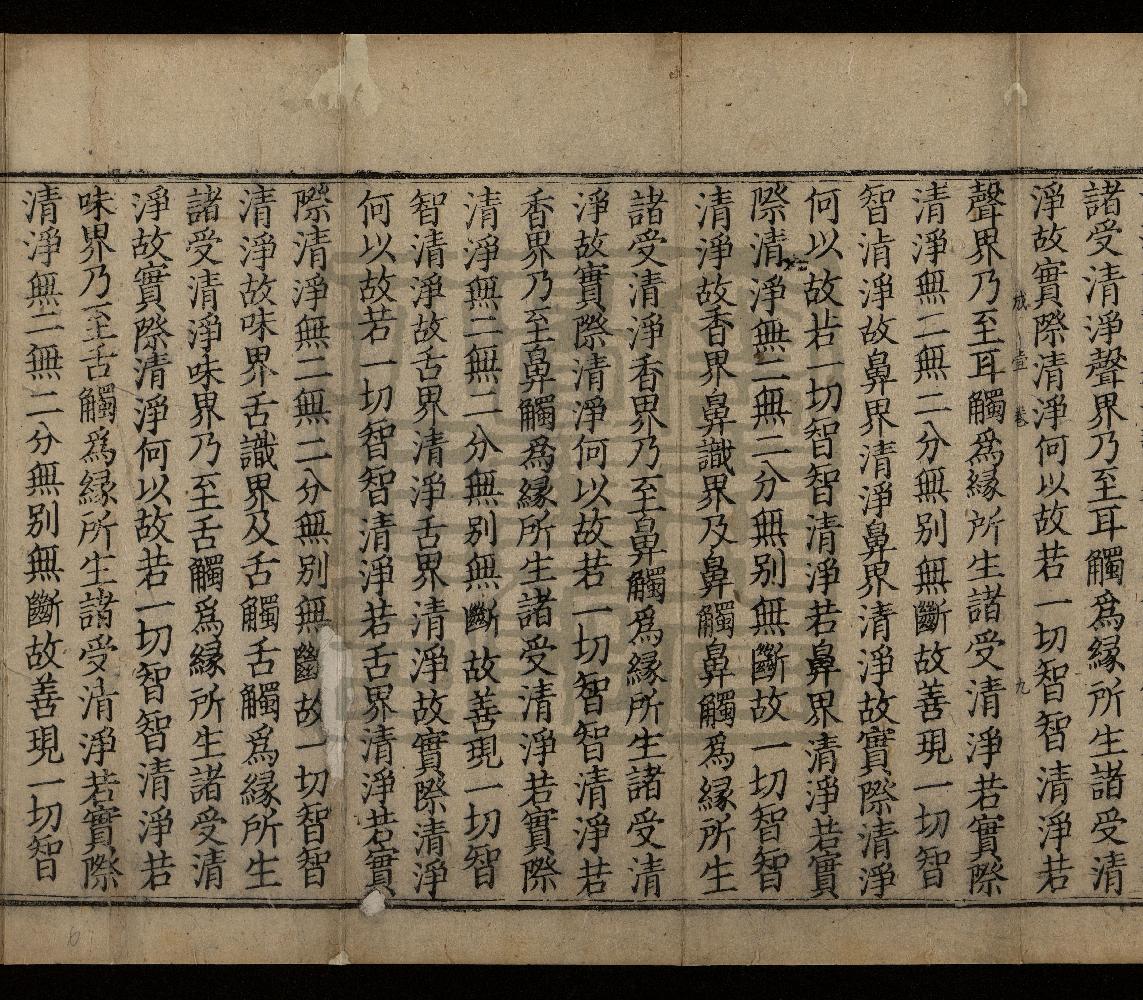 諸受清淨聲界乃至耳觸爲縁所生諸受清
淨故實際清淨何以故若一切智智清淨若
聲界乃至耳觸爲縁所生諸受清淨若實際
清淨無二無二分無别無斷故善現一切智
智清淨故鼻界清淨鼻界清淨故實際清淨
何以故若一切智智清淨若鼻界清淨若實
際清淨無二無二分無别無斷故一切智智
清淨故香界鼻識界及鼻觸鼻觸爲縁所生
諸受清淨香界乃至鼻觸爲縁所生諸受清
淨故實際清淨何以故若一切智智清淨若
香界乃至鼻觸爲縁所生諸受清淨若實際
清淨無二無二分無别無斷故善現一切智
智清淨故舌界清淨舌界清淨故實際清淨
何以故若一切智智清淨若舌界清淨若實
際清淨無二無二分無别無斷故一切智智
清淨故味界舌識界及舌觸舌觸爲縁所生
諸受清淨味界乃至舌觸爲縁所生諸受清
淨故實際清淨何以故若一切智智清淨若
味界乃至舌觸爲縁所生諸受清淨若實際
清淨無二無二分無别無斷故善現一切智